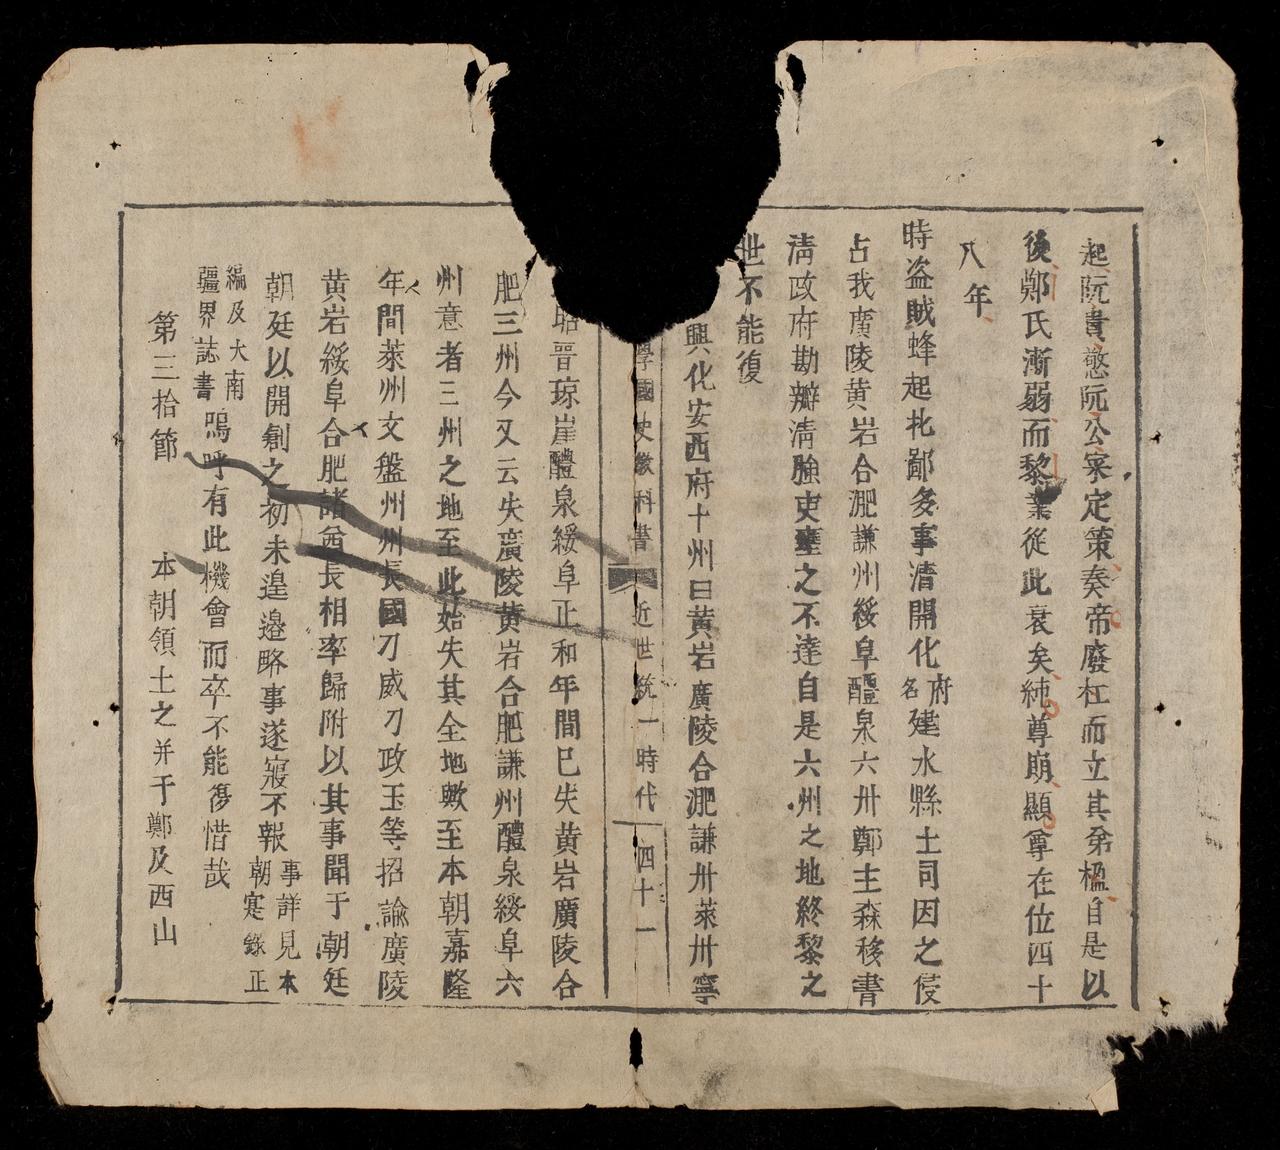 起阮貴憼阮公寀定策奏帝廢杠而立其弟楹自是以
後鄭氏漸弱而黎業從此衰矣純尊崩顯尊在位四十
八年
時盗賊蜂起北鄙多事清開化府名建水縣土司因之侵
占我廣陵黄岩合淝謙州綏阜醴泉六卅鄭主森移書
淸政府勘辦淸強吏壅之不達自是六州之地終黎之
世不能復
興化安西府十州曰黄岩廣陵合淝謙卅萊卅寧
學國史教科書 近世統一時代 四十一
晋琼崖醴泉綏阜正和年間已失黄岩廣陵合
肥三州今又云失廣陵黄岩合肥謙州醴泉綏阜六
州意者三州之地至此始失其全地歟至本朝嘉隆
年間萊州文盤州州長國刀威刀政玉等招諭廣陵
黄岩綏阜合肥諸酋長相率歸附以其事聞于朝廷
朝廷以開創之初未遑邉略事遂寢不報事詳見本朝寔錄正
編及大南疆界誌書嗚呼有此機會而卒不能復惜哉
第三拾節 本朝領土之并于鄭及西山